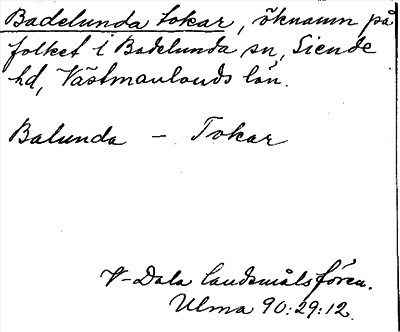 Badelunda tokar, öknamn på
folket i Badelunda sn, Siende
hd, Västmanlands län.
Balunda - Tokar
V-Dala landsmålsfören.
Ulma 90:29:12.